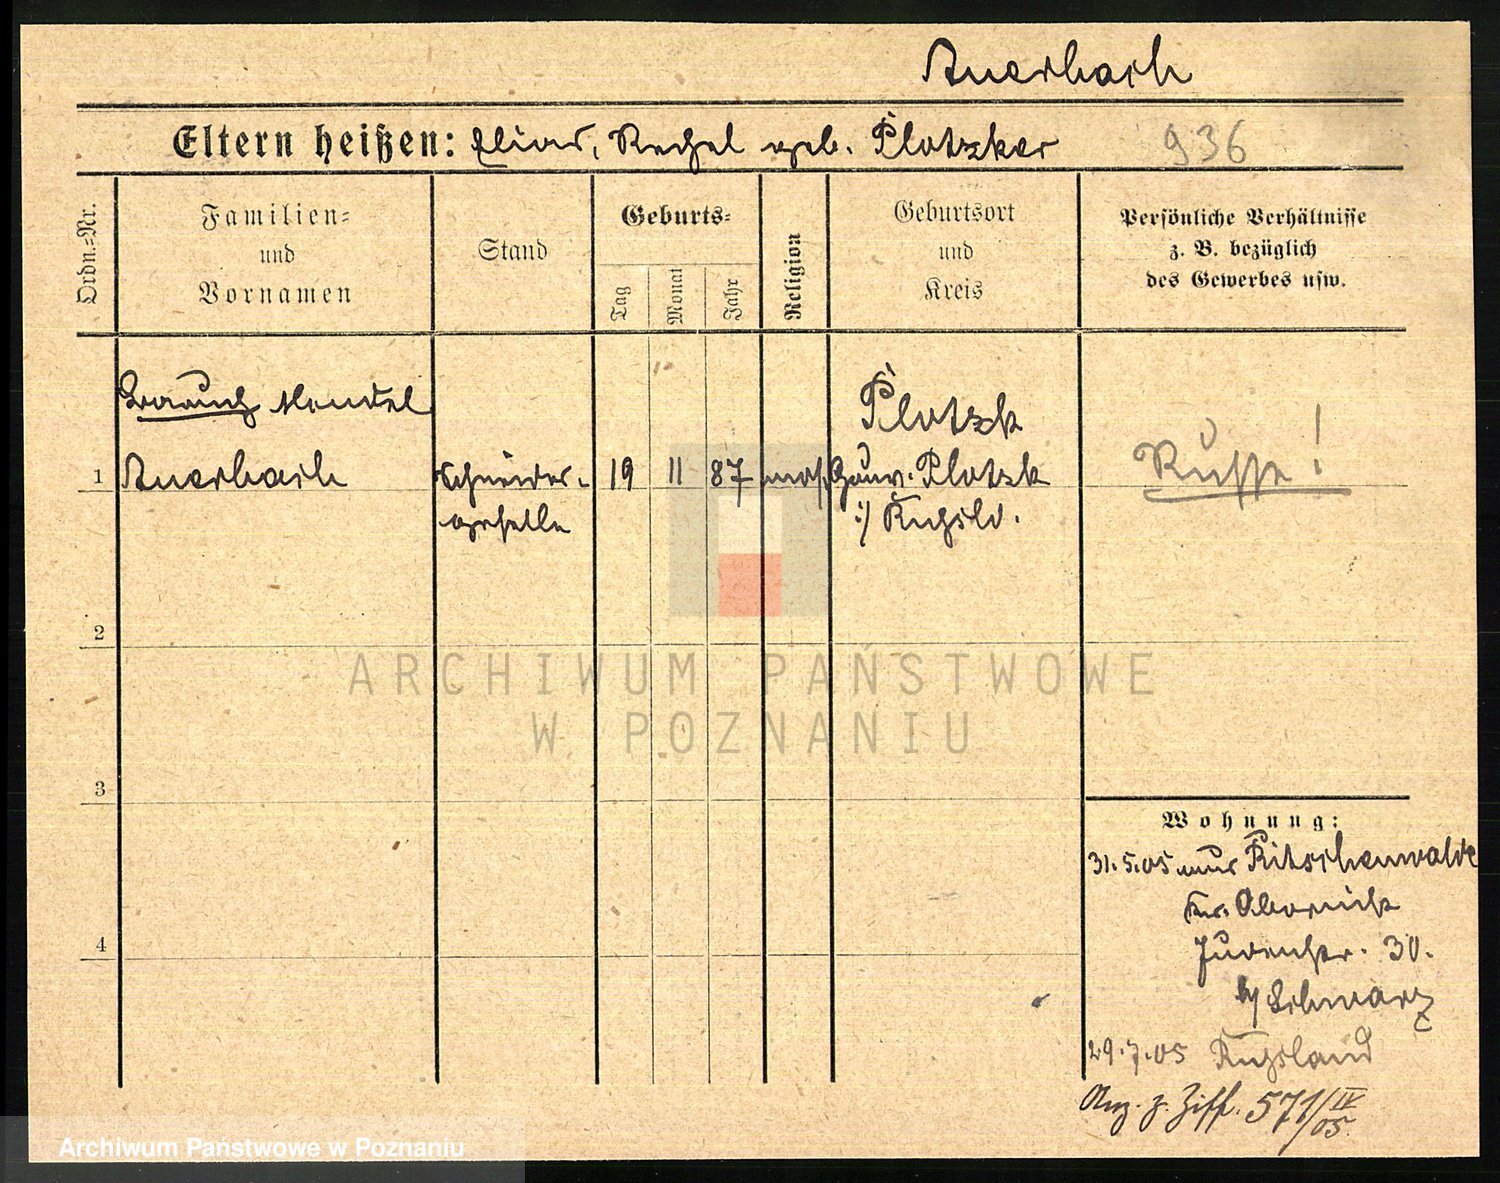 Auerbach
Eltern heißen: Elias, Rachel geb. Plotzker 936
Ordn.=Nr.
Familien=
und
Vornamen
Stand
Geburts=
Tag
Monat
Jahr
Religion
Geburtsort
und
Kreis
Persönliche Verhältnisse
z. B. bezüglich
des Gewerbes usw.
Baruch Mendel
Plotzk
1 Auerbach Schneider- 19 11 87 mos. Gouv. Plotzk Russe!
geselle i/ Rußld.
2
3
4
Wohnung:
31.5.05 aus Ritschenwalde
Kr. Obornick
Judenstr. 30.
b/ Schwarz
29.7.05 Rußland
Anz. z. Ziff. 571/IV 05.
ARCHIWUM PAŃSTWOWE
W POZNANIU
Archiwum Państwowe w Poznaniu